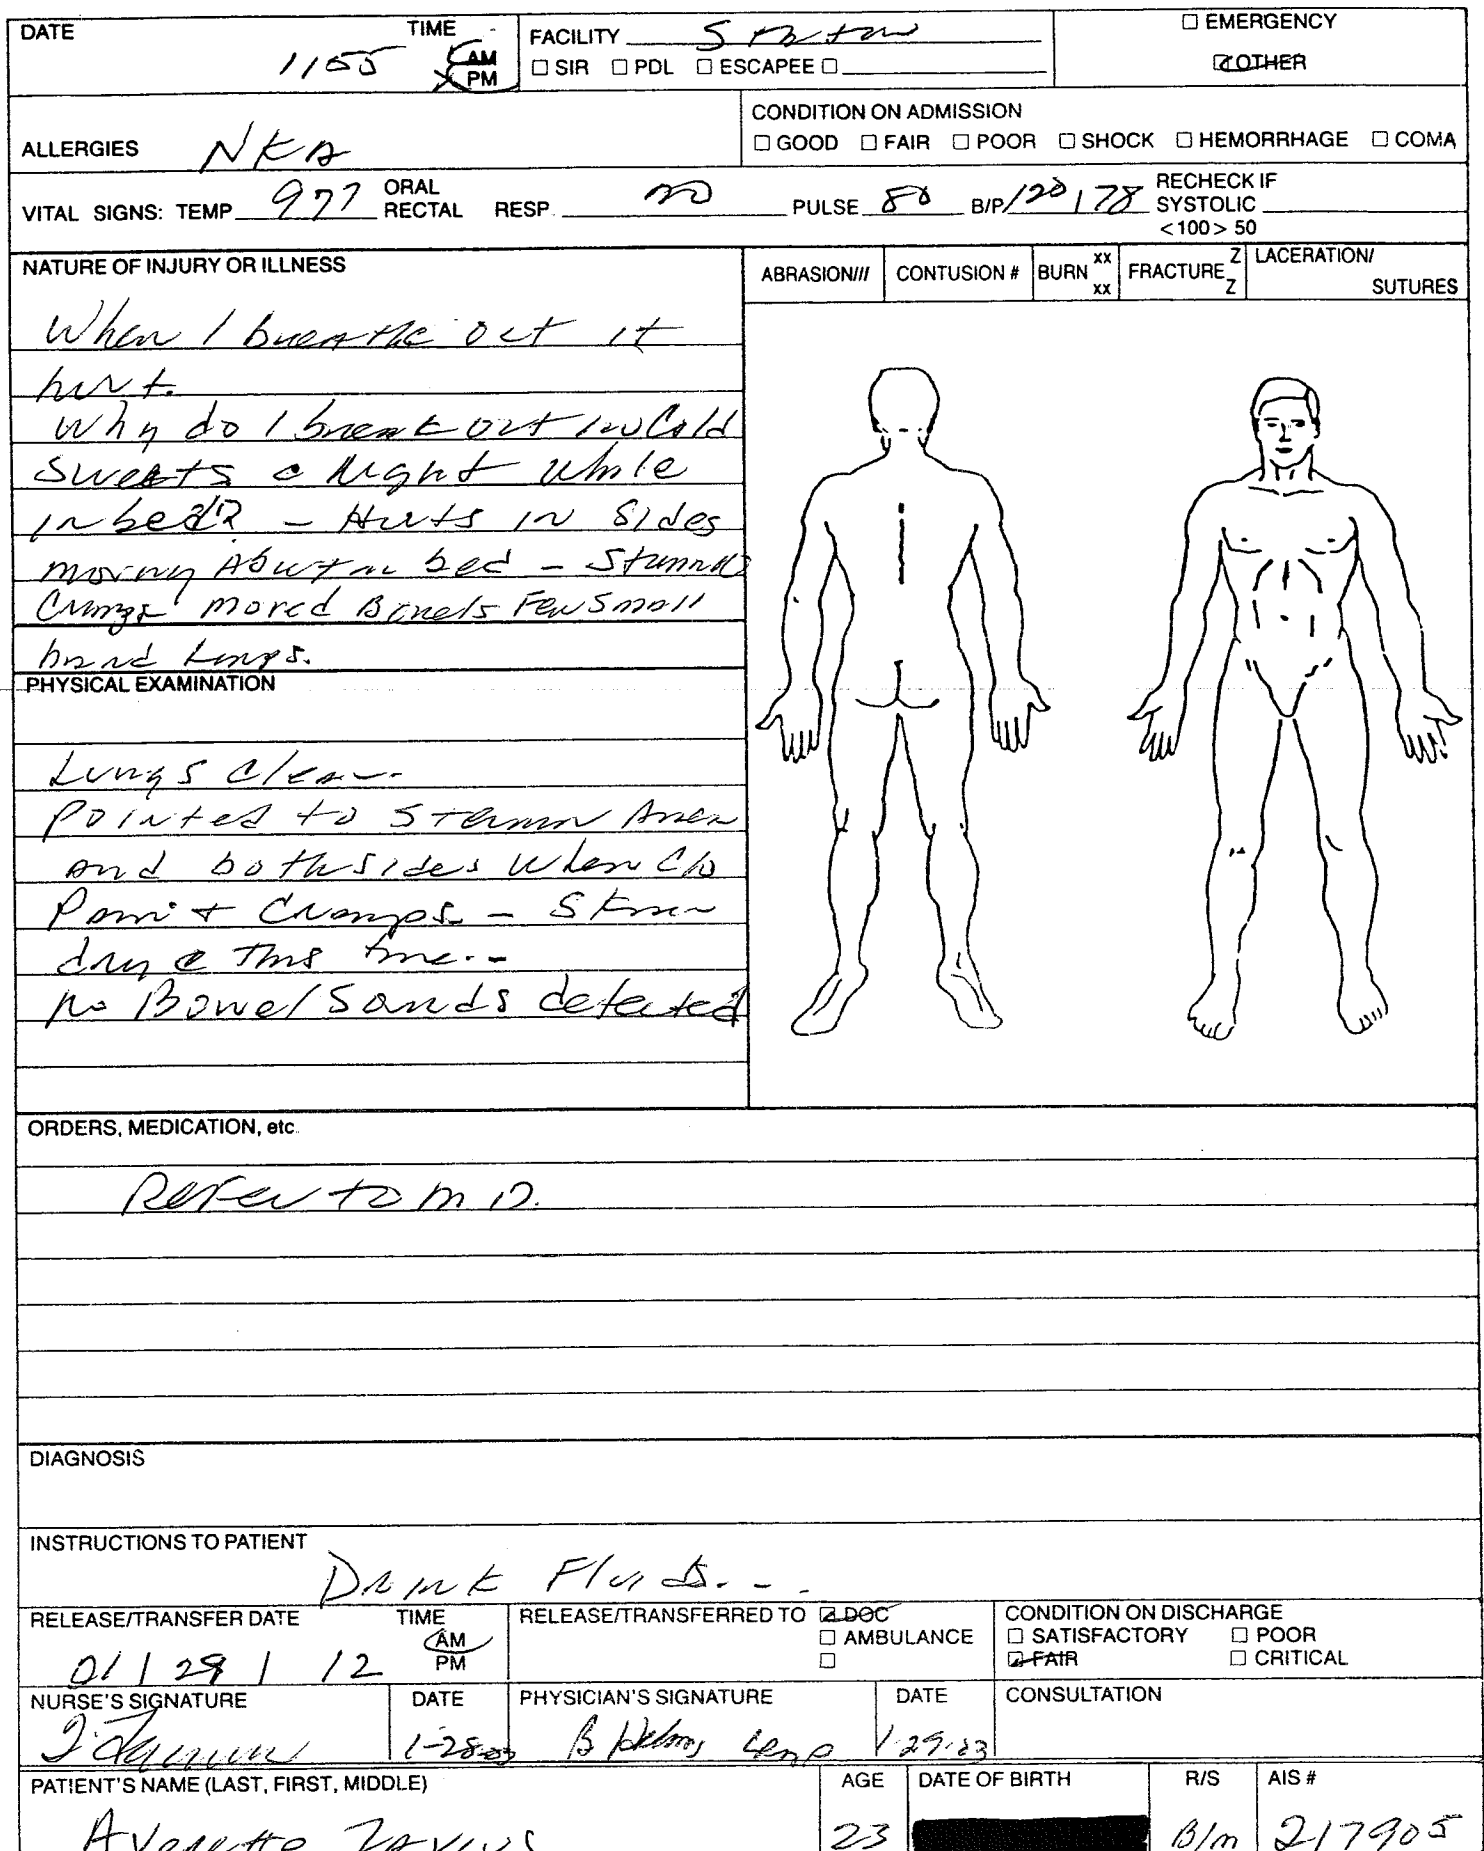 DATE TIME 1155 AM PM
FACILITY
☐ SIR ☐ PDL ☐ ESCAPEE ☐
☐ EMERGENCY
☑ OTHER
ALLERGIES NKA
CONDITION ON ADMISSION
☐ GOOD ☐ FAIR ☐ POOR ☐ SHOCK ☐ HEMORRHAGE ☐ COMA
VITAL SIGNS: TEMP 977 ORAL RECTAL RESP 20 PULSE 80 B/P 120/78 RECHECK IF SYSTOLIC
<100> 50
NATURE OF INJURY OR ILLNESS
ABRASION/// CONTUSION # BURN xx xx FRACTURE Z Z LACERATION/ SUTURES
When I breathe out it
hurt.
Why do I break out in Cold
Sweats @ Night while
in bed? - Hurts in Sides
moving About in bed -
Cramps moved Bowels Few Small
hard Lumps.
PHYSICAL EXAMINATION
Lungs Clear.
Pointed to Sternum Area
and both sides when C/o
Pain + Cramps. - Skin
dry @ this time.-
No Bowel Sounds detected
ORDERS, MEDICATION, etc.
Refer to M.D.
DIAGNOSIS
INSTRUCTIONS TO PATIENT
Drink Fluids...
RELEASE/TRANSFER DATE TIME
01 / 29 / 12 AM PM
RELEASE/TRANSFERRED TO ☑ DOC
☐ AMBULANCE
☐
CONDITION ON DISCHARGE
☐ SATISFACTORY ☐ POOR
☑ FAIR ☐ CRITICAL
NURSE'S SIGNATURE DATE PHYSICIAN'S SIGNATURE DATE CONSULTATION
1-28-03 B Helms 1-29-03
PATIENT'S NAME (LAST, FIRST, MIDDLE) AGE DATE OF BIRTH R/S AIS #
23 B/m 217905